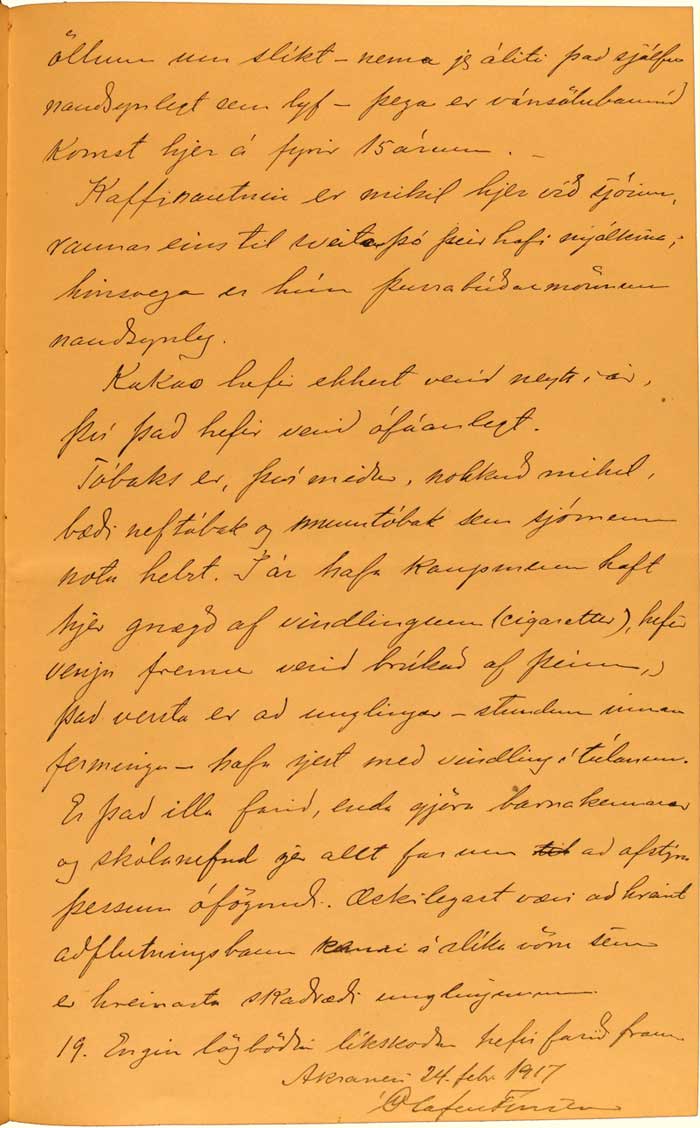 öllum um slíkt – nema jeg áliti það sjálfur
nauðsynlegt sem lyf – þega er vínsölubannið
komst hjer á fyrir 15 árum. –
Kaffinautnin er mikil hjer við sjóinn,
raunar eins til sveita þó þeir hafi mjólkina;
hinsvega er hún þurrabúðarmönnum
nauðsynleg.
Kakao hefir ekkert verið neytt í ár,
því það hefir verið ófáanlegt.
Tóbaks er, því miður, nokkuð mikil,
bæði neftóbak og munntóbak sem sjómenn
nota helst. Í ár hafa kaupmenn haft
hjer gnægð af vindlingum (cigaretter), hefir
venju fremur verið brúkað af þeim,
það versta er að unglingar – stundum innan
fermingu – hafa sjest með vindling í túlanum.
Er það illa farið, enda gjöra barnakennarar
og skólanefnd sjer allt far um að afstýra
þessum ófögnuði. Æskilegast væri að hreint
aðflutningsbann á slíka vöru sem
er hreinasta skaðræði unglingum
19. Engin lögboðin líkskoðun hefir farið fram.
Akranesi 24. febr. 1917
Ólafur Finsen